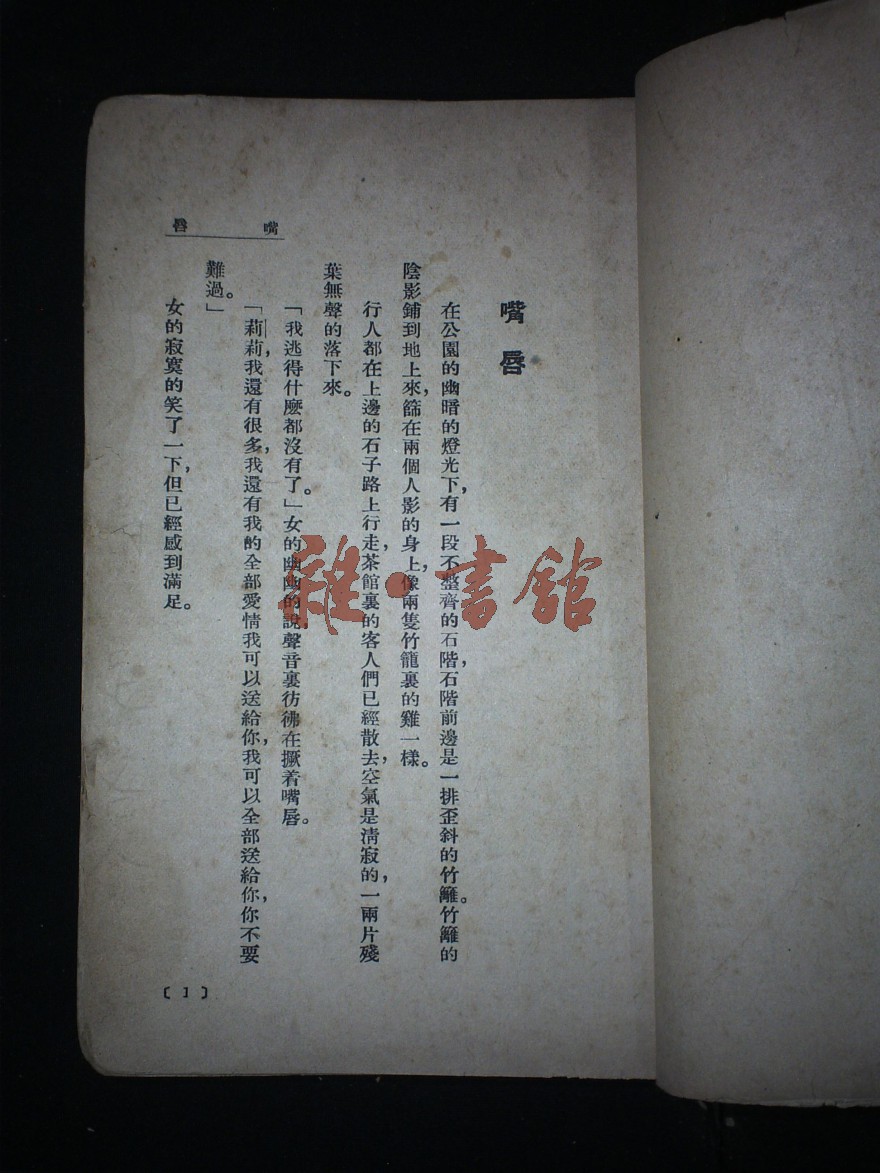 嘴唇
嘴唇
在公園的幽暗的燈光下，有一段不整齊的石階，石階前邊是一排歪斜的竹籬。竹籬的
陰影鋪到地上來，篩在兩個人影的身上，像兩隻竹籠裏的雞一樣。
行人都在上邊的石子路上行走，茶館裏的客人們已經散去，空氣是清寂的，一兩片殘
葉無聲的落下來。
「我逃得什麼都沒有了。」女的幽幽的說，聲音裏彷彿在撅着嘴唇。
「莉莉，我還有很多，我還有我的全部愛情我可以送給你，我可以全部送給你，你不要
難過。」
女的寂寞的笑了一下，但已經感到滿足。
〔1〕
雜·書館